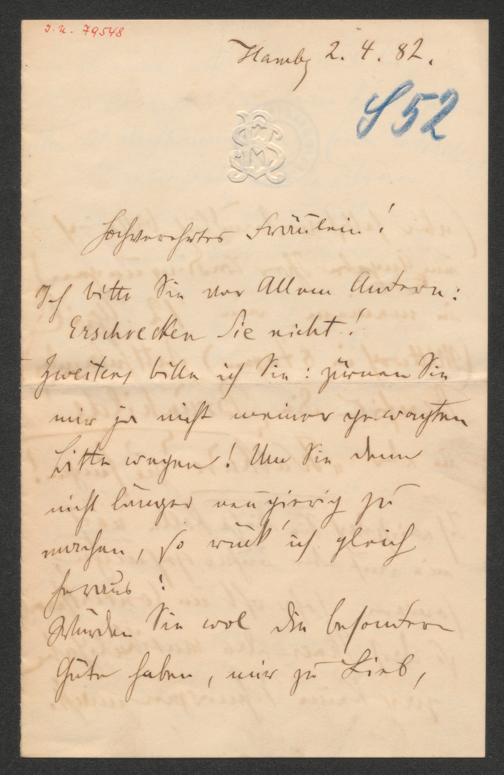 I. N. 79548
Hambg 2. 4. 82.
S 52
Hochverehrtes Fräulein!
Ich bitte Sie vor Allem Andern:
Erschrecken Sie nicht!
Zweitens bitte ich Sie: zürnen Sie
mir ja nicht meiner gewagten
Bitte wegen! Um Sie denn
nicht länger neugierig zu
machen, so rück' ich gleich
heraus:
Würden Sie wol die besondere
Güte haben, mir zu Lieb,